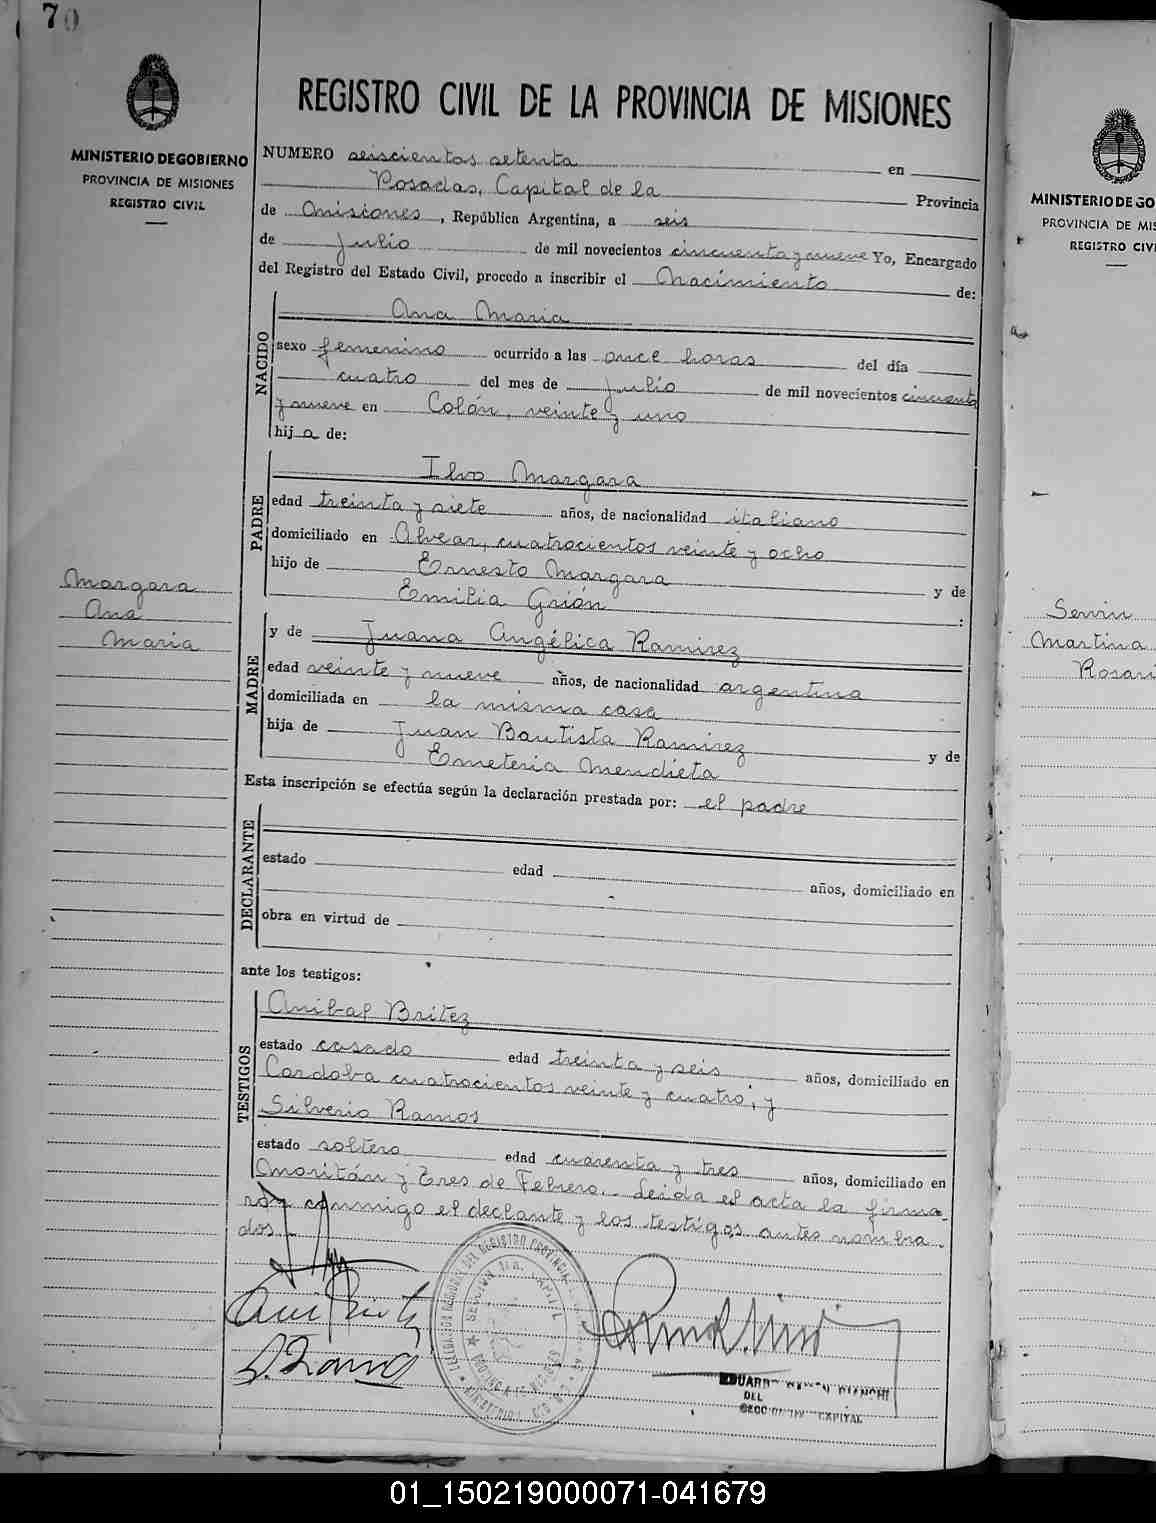 70
MINISTERIO DE GOBIERNO
PROVINCIA DE MISIONES
REGISTRO CIVIL
REGISTRO CIVIL DE LA PROVINCIA DE MISIONES
NUMERO seiscientos setenta en
Posadas, Capital de la Provincia
de Misiones, República Argentina, a seis
de Julio de mil novecientos cincuenta y nueve Yo, Encargado
del Registro del Estado Civil, procedo a inscribir el Nacimiento de:
NACIDO
Ana Maria
sexo femenino ocurrido a las once horas del día
cuatro del mes de Julio de mil novecientos cincuenta
y nueve en Colón, veinte y uno
hij a de:
PADRE
Ilvo Margara
edad treinta y siete años, de nacionalidad italiano
domiciliado en Alvear, cuatrocientos veinte y ocho
hijo de Ernesto Margara y de
Emilia Grión :
Margara
Ana
Maria
MADRE
y de Juana Angélica Ramirez
edad veinte y nueve años, de nacionalidad argentina
domiciliada en la misma casa
hija de Juan Bautista Ramirez y de
Emeteria Mendieta
Esta inscripción se efectúa según la declaración prestada por: el padre
DECLARANTE
estado edad años, domiciliado en
obra en virtud de
ante los testigos:
TESTIGOS
Anibal Britez
estado casado edad treinta y seis años, domiciliado en
Cordoba cuatrocientos veinte y cuatro; y
Silverio Ramos
estado soltero edad cuarenta y tres años, domiciliado en
Moritán y Tres de Febrero. Leida el acta la firma-
ron conmigo el declante y los testigos antes nombra-
dos.-
S. Ramos
DEL
CAPITAL
MINISTERIO DE GO
PROVINCIA DE MIS
REGISTRO CIVI
Servin
Martina
Rosari
01_150219000071-041679